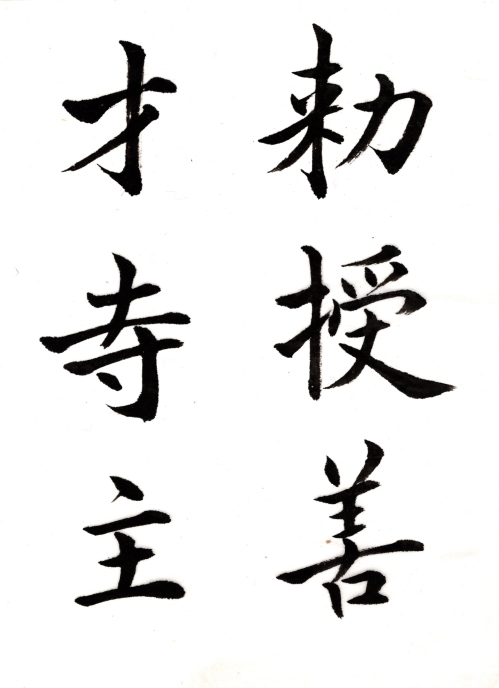 勑授善
才寺主